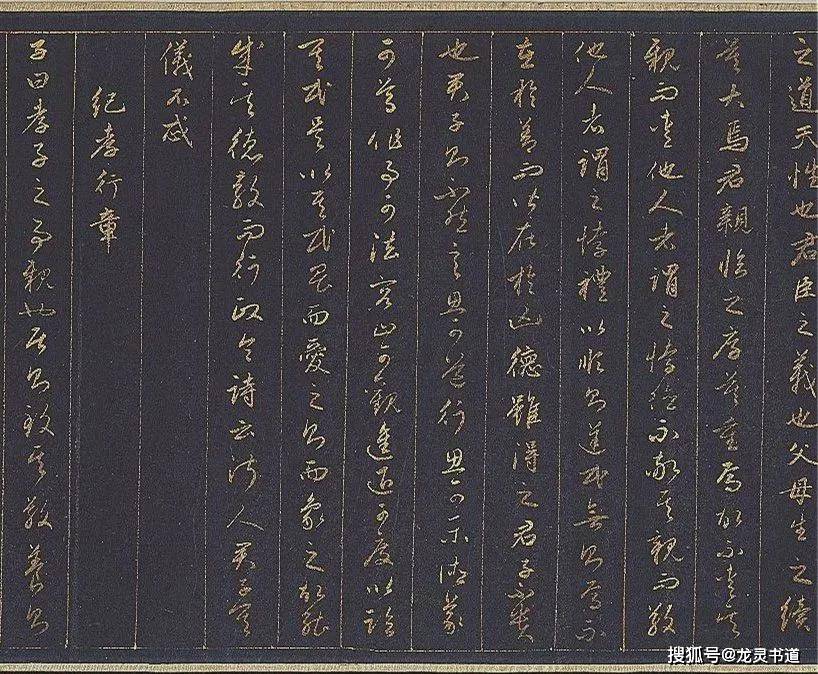 之道天性也君臣之義也父母生之續
莫大焉君親臨之厚莫重焉故不愛其
親而愛他人者謂之悖德不敬其親而敬
他人者謂之悖禮以順則逆民無則焉不
在於善而皆在於凶德雖得之君子不貴
也君子則不然言思可道行思可樂德義
可尊作事可法容止可觀進退可度以臨
其民是以其民畏而愛之則而象之故能
成其德教而行政令詩云淑人君子其
儀不忒
紀孝行章
子曰孝子之事親也居則致其敬養則
搜狐号@龙灵书道